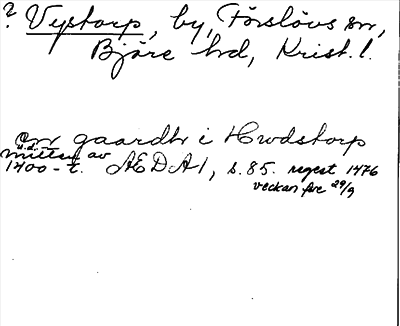 ? Vystorp, by, Förslövs sn,
Bjäre hd, Krist. l.
en gaardh i Hwdstorp
u.d.
mitten av
1400-t. AEDA 1, s. 85. regest 1476
veckan före 29/9